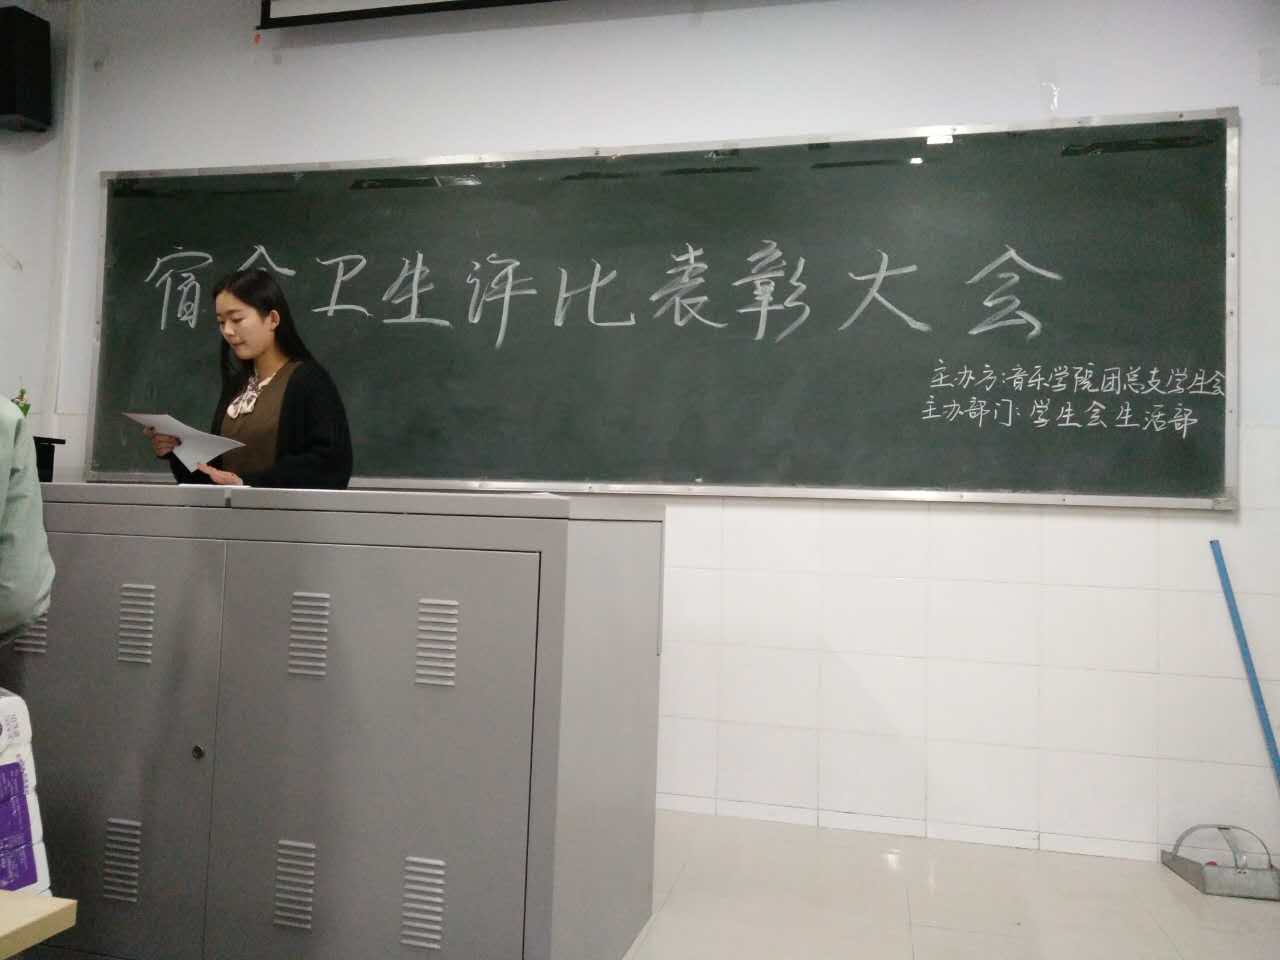 宿舍卫生评比表彰大会
主办方:音乐学院团总支学生会
主办部门:学生会生活部